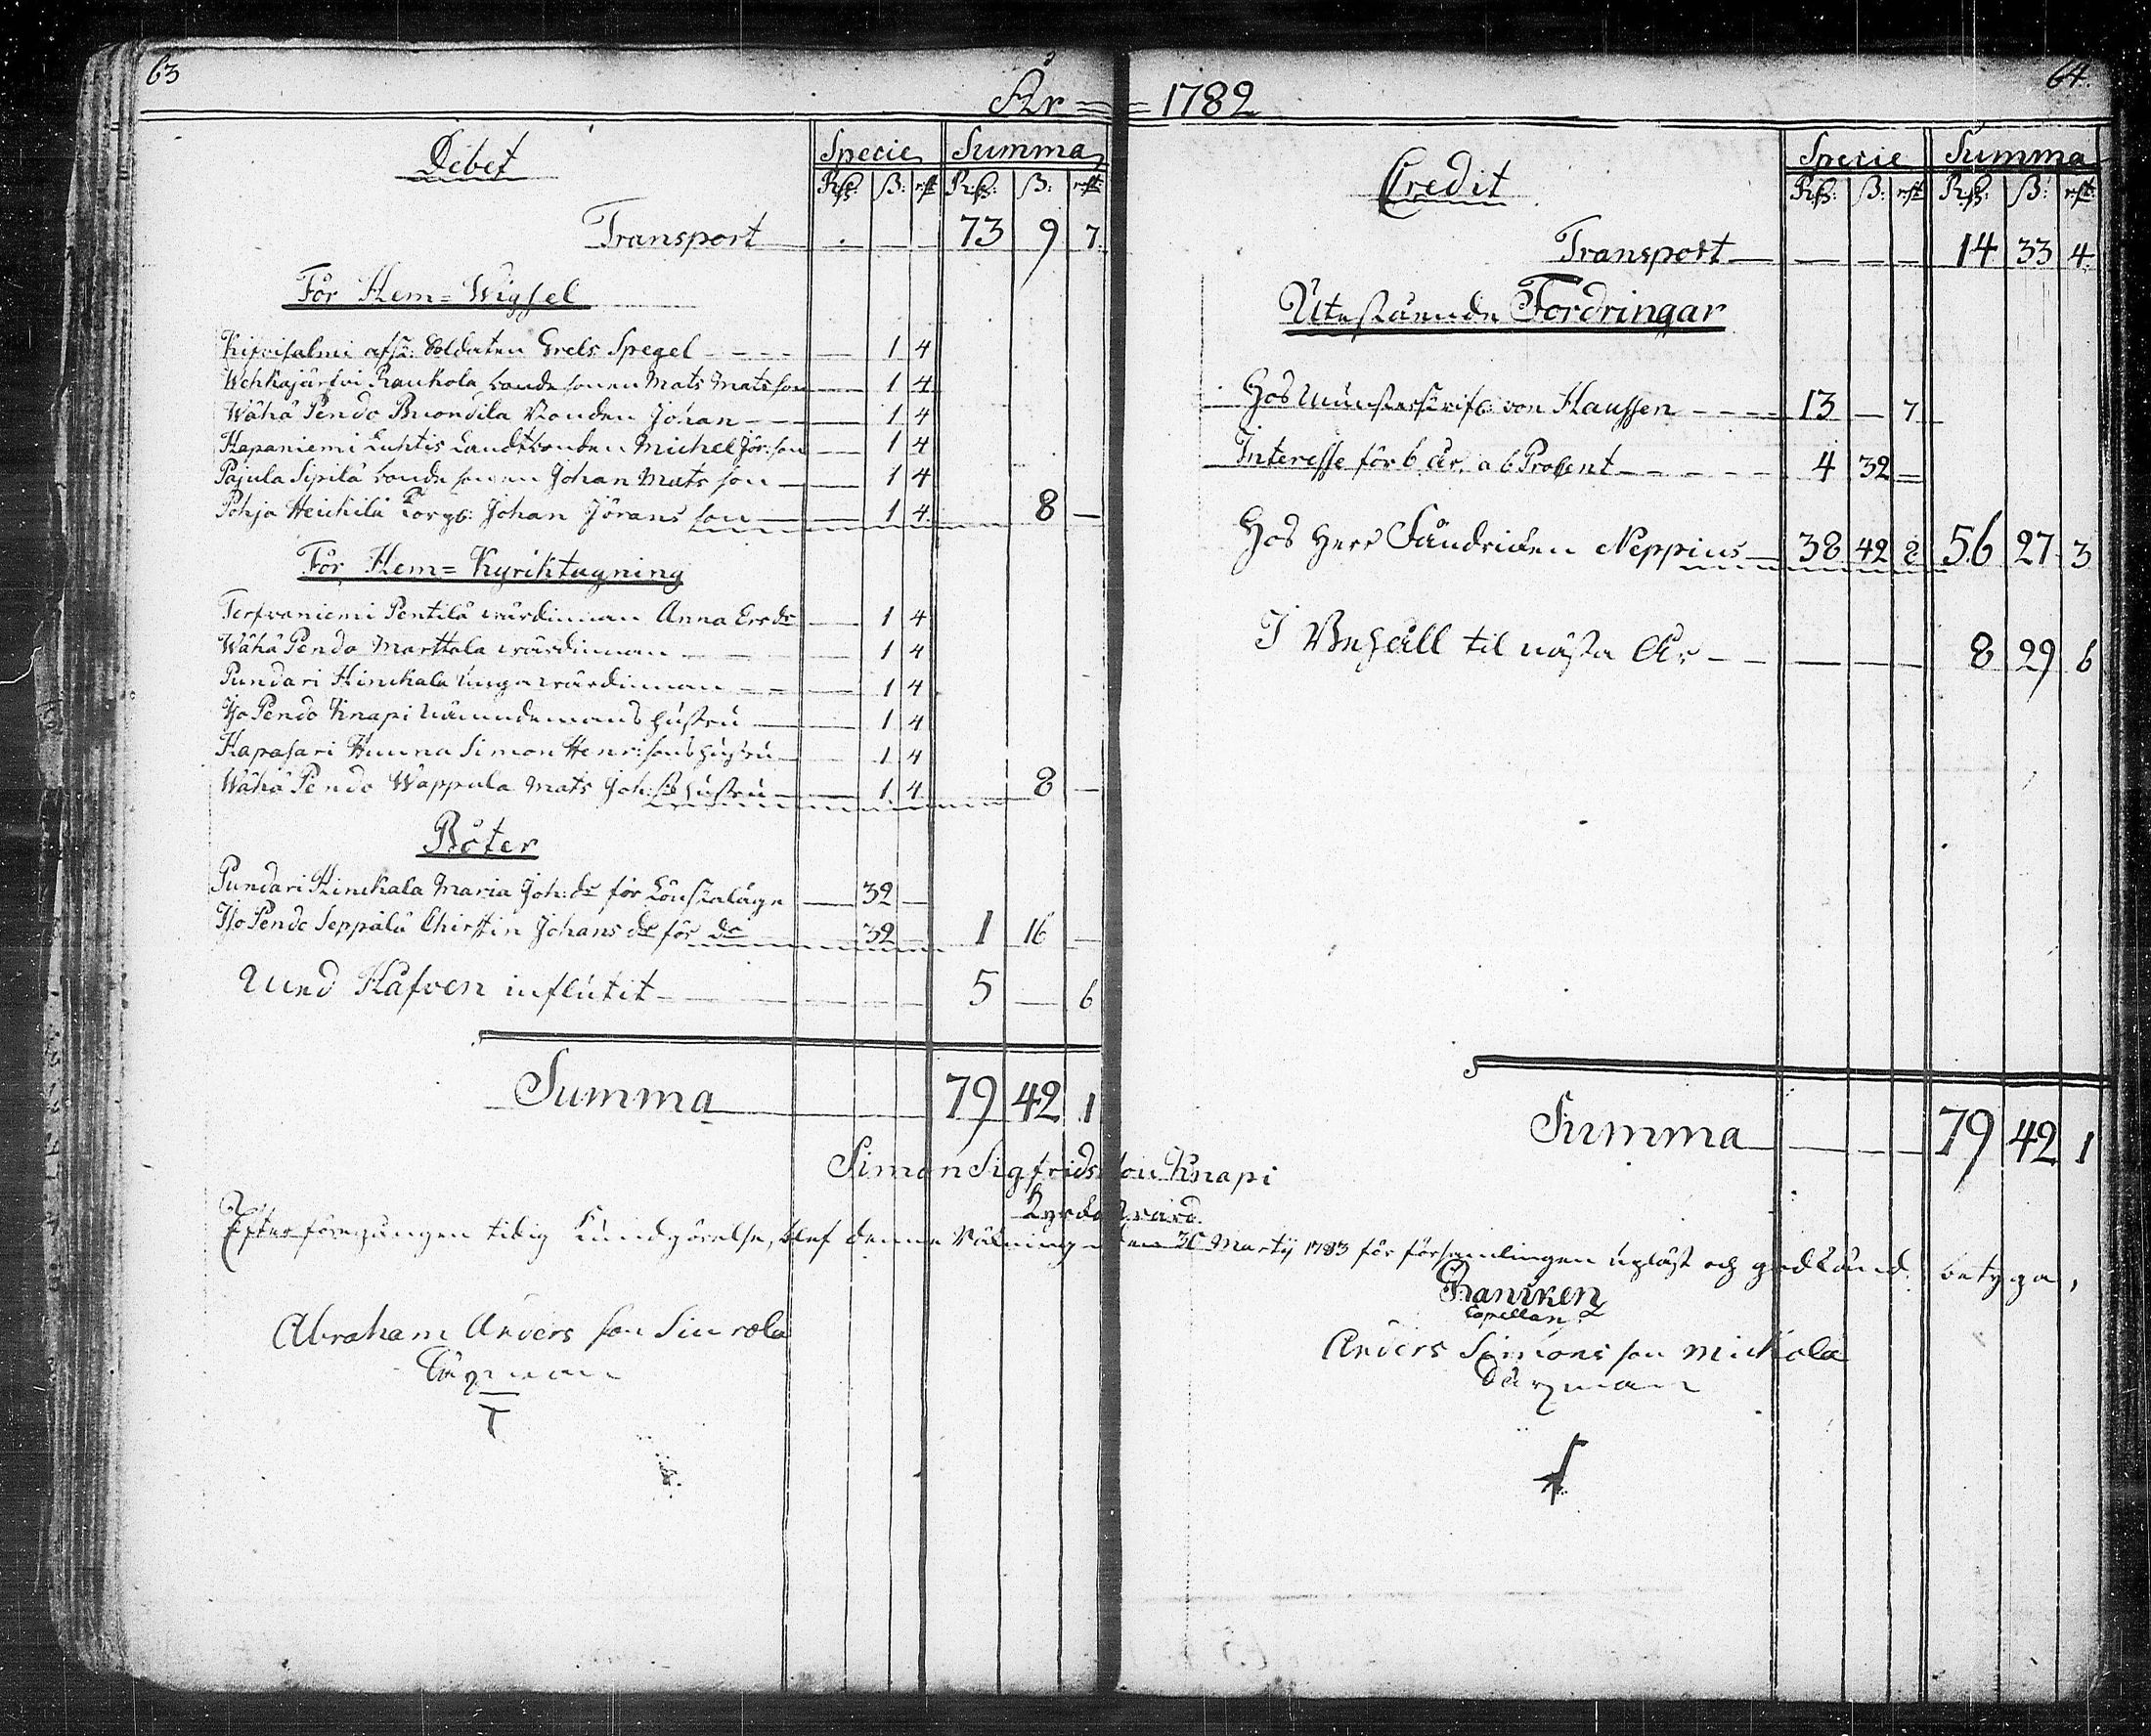 63
År 1782
64.
Debet
Specie Summa
Rd: ß: rst: Rd: ß: rst:
Transport 73 9 7.
För Hem=Wigsel
Kifvisalmi afsk: Soldaten Grels Spegel 1 4
Wehkajärfvi Raukola bonde sonen Mats Mats son 1 4
Wähä Pendo Buondila bonden Johan 1 4
Hapaniemi Luhtis Landtbonden Michel Jör: son 1 4
Pajula Sipilä bonde sonen Johan Mats son 1 4
Pohja Heickilä Torp: Johan Jörans son 1 4. 8 —
För Hem=Kyrcktagning
Terfvaniemi Pentilä wärdinnan Anna Ersdr 1 4
Wähä Pendo Marttala wärdinnan 1 4
Pundari Hinckala unga wärdinnan 1 4
Iso Pendo Knapi Nämndemans hustru 1 4
Hapasari Hunna Simon Henr: sons hustru 1 4
Wähä Pendo Wappula Mats Joh: ss hustru 1 4. 8 —
Böter
Pundari Hinckala Maria Joh: dr för Lönskaläge 32 —
Iso Pendo Seppälä Chirstin Johans dr för do 32 — 1 16 —
Med Håfven influtit 5 — 6
Summa 79 42 1
Credit
Specie Summa
Rd: ß: rst: Rd: ß: rst:
Transport 14 33 4.
Utestående Fordringar
Hos Munsterskrif: von Haussen 13 — 7
Interesse för 6 år, a 6 Procent 4 32 —
Hos Herr Fändricken Neppius 38 42 8 56 27 3
I Behåll til nästa År 8 29 6
Summa 79 42 1
Simon Sigfrids son Knapi
Kyrckowärd.
Efter föregången tidig Kundgörelse, blef denne Räkning den 30 Martij 1783 för församlingen upläst och godkänd. betyga,
Capellan
Abraham Anders son Sinrola
Anders Simons son Mickola